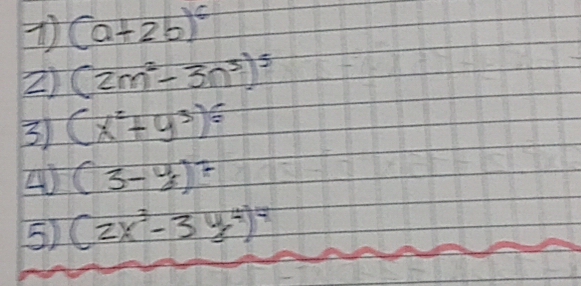 1) (a+2b)⁶
2) (2m²-3n³)⁵
3) (x²+y³)⁶
4) (3-y/3)⁷
5) (2x³-3y⁴)⁷